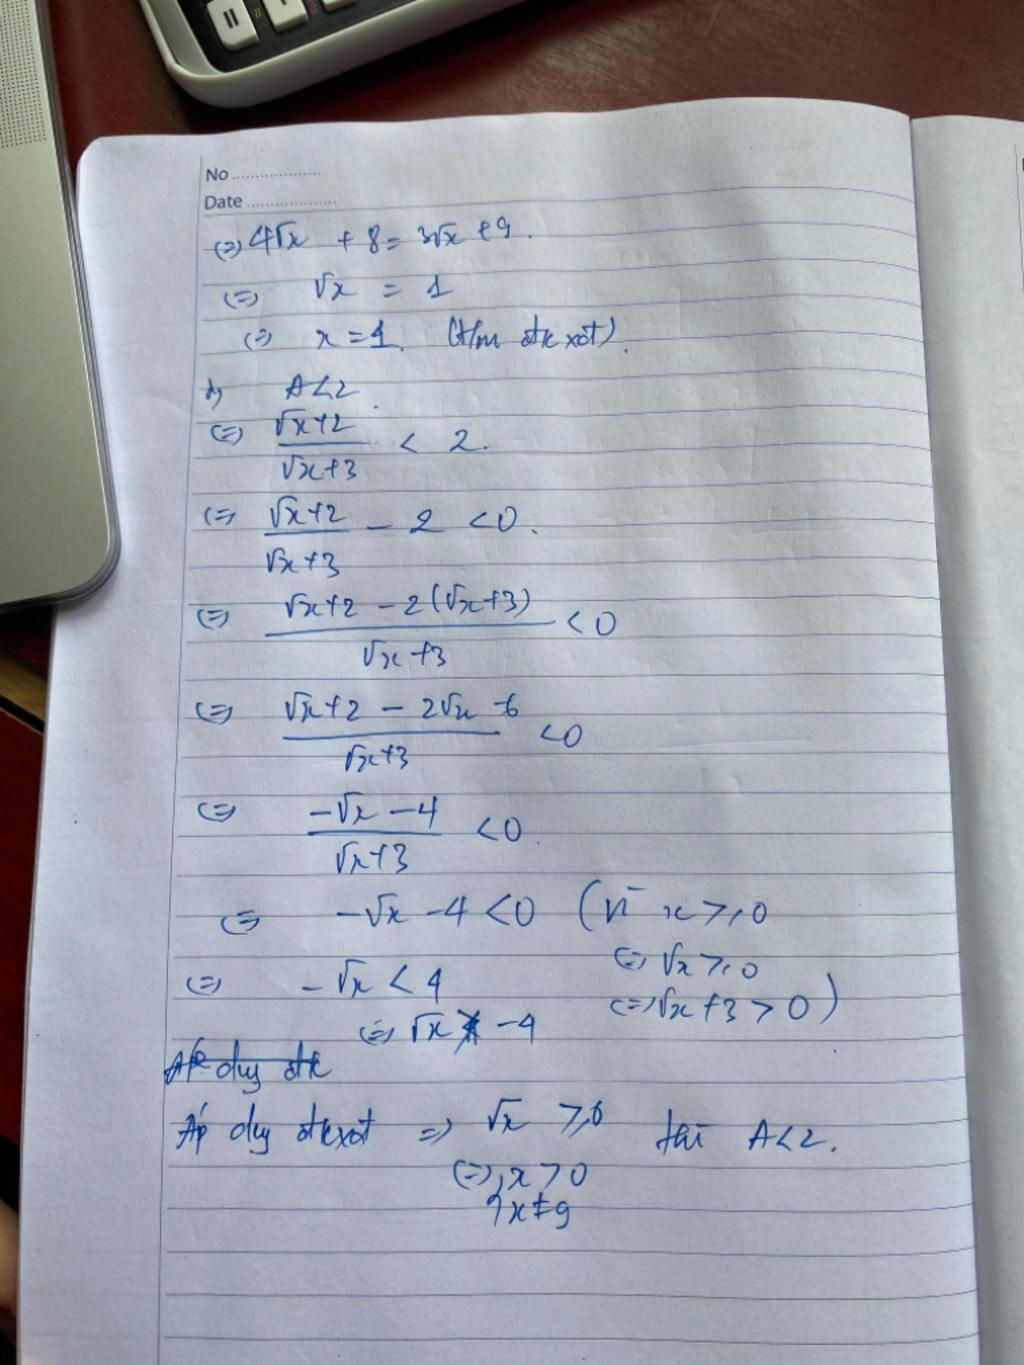 No
Date
(=) 4√x + 8 = 3√x + 9.
(=) √x = 1
(=) x = 1. (t/m đk xđ).
b) A < 2.
(=) (√x+2)/(√x+3) < 2.
(=) (√x+2)/(√x+3) - 2 < 0.
(=) (√x+2 - 2(√x+3))/(√x+3) < 0
(=) (√x+2 - 2√x - 6)/(√x+3) < 0
(=) (-√x - 4)/(√x+3) < 0
(=) -√x - 4 < 0 (vì x ≥ 0
(=) √x ≥ 0
(=) -√x < 4
(=) √x + 3 > 0)
(=) √x > -4
Áp dụng đk
Áp dụng đkxđ => √x ≥ 0 thì A < 2.
(=) x > 0
x ≠ 9